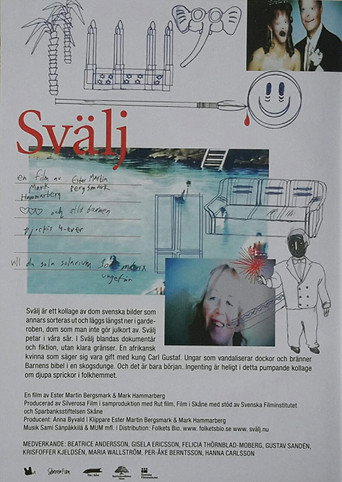 Svälj
en film av Ester Martin
Mark Bergsmark
Hammarberg
och sitt barmen
Svälj är ett kollage av dom svenska bilder som
annars sorteras ut och läggs längst ner i garde-
roben, dom som man inte gör julkort av. Svälj
petar i våra sår. I Svälj blandas dokumentär
och fiktion, utan klara gränser. En afrikansk
kvinna som säger sig vara gift med kung Carl Gustaf. Ungar som vandaliserar dockor och bränner
Barnens bibel i en skogsdunge. Och det är bara början. Ingenting är heligt i detta pumpande kollage
om djupa sprickor i folkhemmet.
En film av Ester Martin Bergsmark & Mark Hammarberg
Producerad av Silverosa Film i samproduktion med Rut film, Film i Skåne med stöd av Svenska Filminstitutet
och Sparbanksstiftelsen Skåne
Producent: Anna Byvald | Klippare Ester Martin Bergsmark & Mark Hammarberg
Musik Sami Sänpäkkilä & MUM mfl. | Distribution: Folkets Bio, www. folketsbio.se www. svälj.nu
MEDVERKANDE: BEATRICE ANDERSSON, GISELA ERICSSON, FELICIA THÖRNBLAD-MOBERG, GUSTAV SANDÉN,
KRISFOFFER KJELDSÉN, MARIA WALLSTRÖM, PER-ÅKE BERNTSSON, HANNA CARLSSON